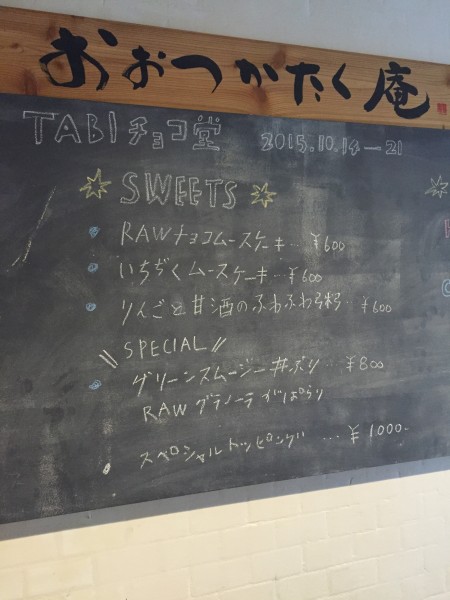 おおつかたく庵
TABIチョコ堂 2015.10.14—21
SWEETS
RAWチョコムースケーキ…¥600
いちぢくムースケーキ…¥600
りんごと甘酒のふわふわ…¥600
\\ SPECIAL //
グリーンスムージー丼ぶり…¥800
RAWグラノーラがぱらり
スペシャルトッピング…¥1000-